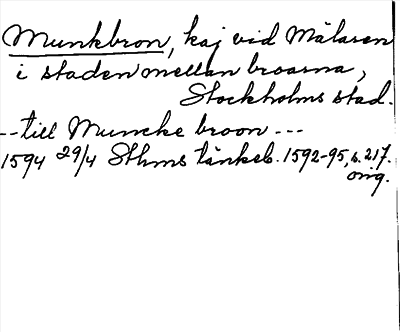 Munkbron, kaj vid Mälaren
i staden mellan broarna,
Stockholms stad.
--till Muncke broon ---
1594 29/4 Sthms tänkeb. 1592-95, s. 217.
orig.